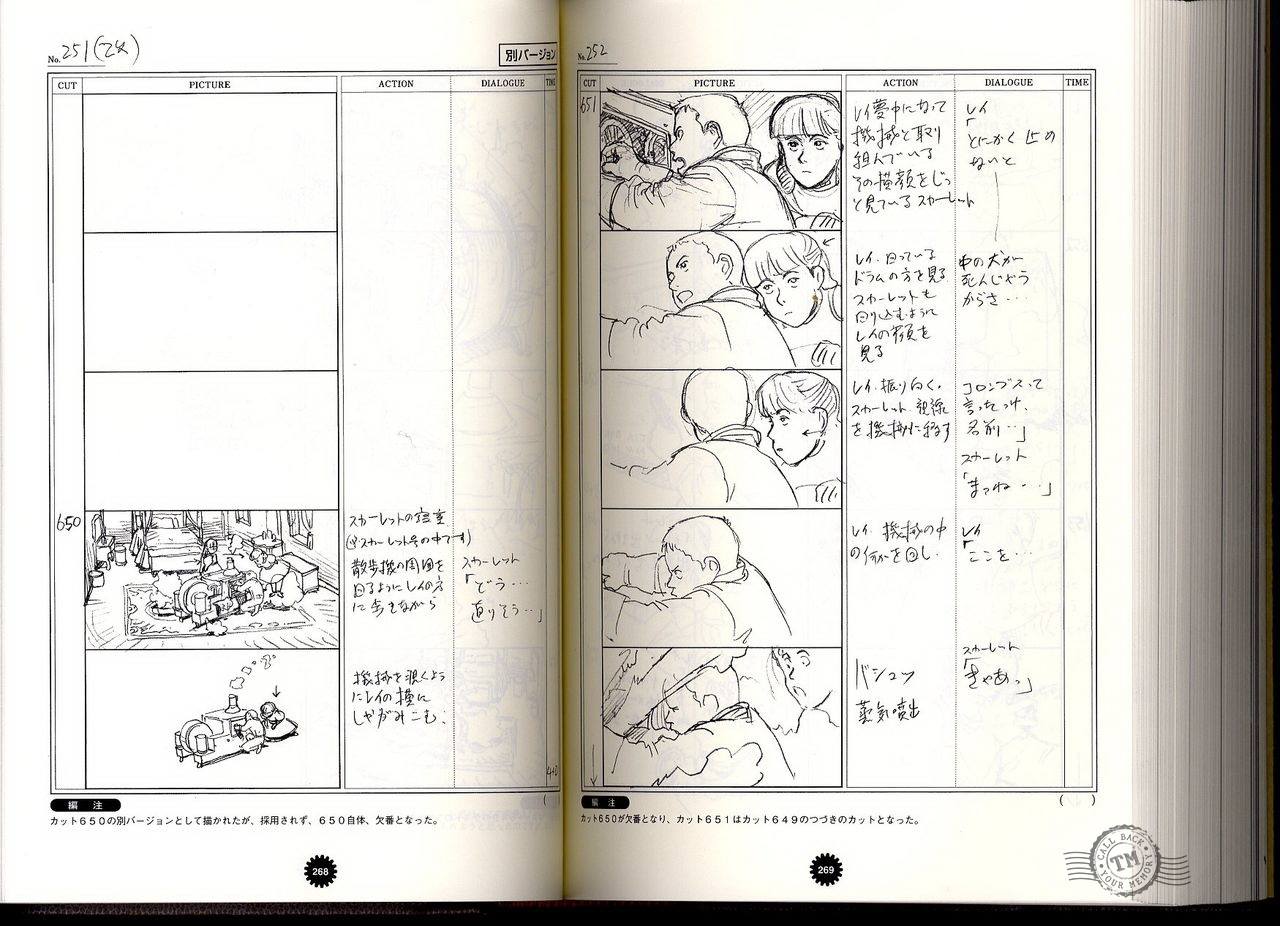 No. 251(2X)
別バージョン
CUT
PICTURE
ACTION
DIALOGUE
TIME
650
スカーレットの寝室
(※スカーレット号の中です)
散歩機の周囲を
回るようにレイの方
に歩きながら
スカーレット
「どう…
直りそう…」
機械を覗くよう
にレイの横に
しゃがみこむ.
4+0
( 
編 注
カット650の別バージョンとして描かれたが、採用されず、650自体、欠番となった。
268
No. 252
CUT
PICTURE
ACTION
DIALOGUE
TIME
651
レイ夢中になって
機械と取り
組んでいる
その横顔をじっ
と見ているスカーレット
レイ
「
とにかく止め
ないと
レイ.回っている
ドラムの方を見る
スカーレットも
回り込むように
レイの顔を
見る
中の犬が
死んじゃう
からさ…
レイ.振り向く.
スカーレット視線
を機械に移す
コロンブスって
言ったっけ.
名前…」
スカーレット
「まってね…」
レイ 機械の中
の何かを回し.
レイ
「ここを…
バシュッ
蒸気噴出
スカーレット
「きゃあっ」
( )
編 注
カット650が欠番となり、カット651はカット649のつづきのカットとなった。
269
CALL BACK
TM
YOUR MEMORY